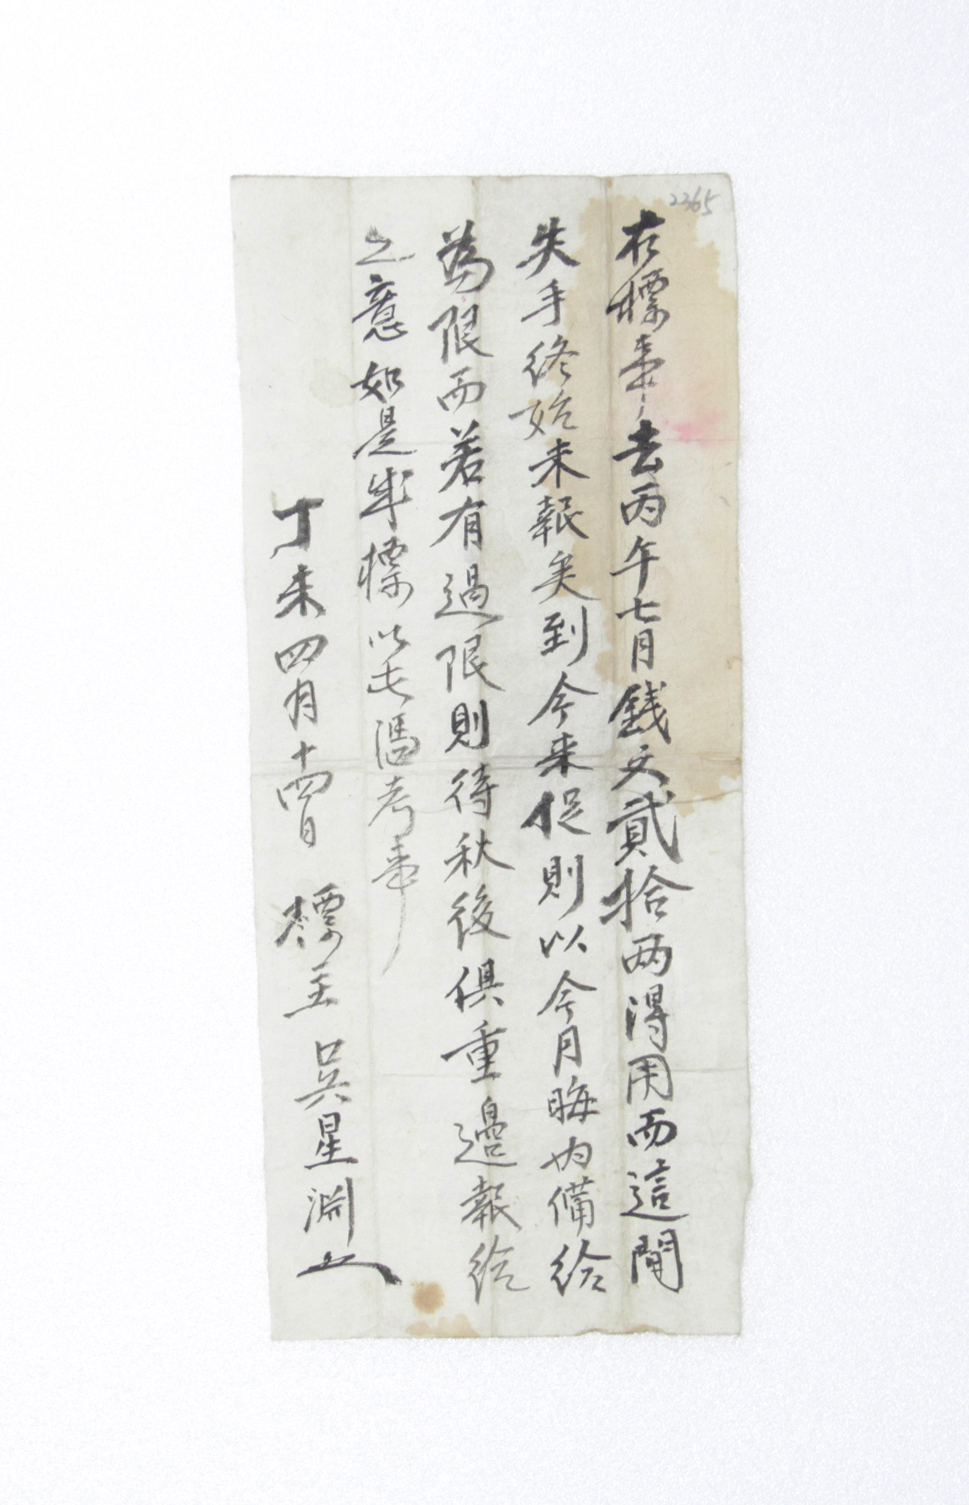 2365
右標事去丙午七月錢文貳拾兩得用而這間
失手終始未報矣到今來促則以今月晦內備給
為限而若有過限則待秋後俱重邊報給
之意如是成標以此憑考事
丁未四月十四日 標主 吳星淵